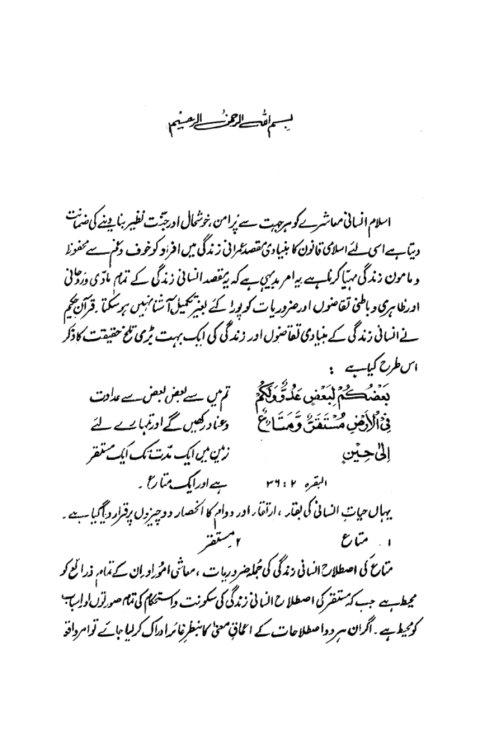 بسم اللہ الرحمٰن الرحیم
اسلام انسانی معاشرے کو ہر جہت سے پُر امن، خوشحال اور جنّت نظیر بنا دینے کی ضمانت
دیتا ہے اسی لئے اسلامی قانون کا بنیادی مقصد عمرانی زندگی میں افراد کو خوف و غم سے محفوظ
و مامون زندگی مہیّا کرنا ہے یہ امر بدیہی ہے کہ یہ مقصد انسانی زندگی کے تمام مادّی و روحانی
اور ظاہری و باطنی تقاضوں اور ضروریات کو پورا کئے بغیر تکمیل آشنا نہیں ہو سکتا۔ قرآن حکیم
نے انسانی زندگی کے بنیادی تقاضوں اور زندگی کی ایک بہت بڑی تلخ حقیقت کا ذکر
اس طرح کیا ہے :
بَعْضُكُمْ لِبَعْضٍ عَدُوٌّ وَلَكُمْ تم میں سے بعض بعض سے عداوت
فِي الْأَرْضِ مُسْتَقَرٌّ وَّمَتَاعٌ وعناد رکھیں گے اور تمہارے لئے
إِلَىٰ حِينٍ زمین میں ایک مدّت تک ایک مستقر
البقرہ ۲ : ۳۶ ہے اور ایک متاع۔
یہاں حیاتِ انسانی کی بقار ، ارتقار اور دوام کا انحصار دو چیزوں پر قرار دیا گیا ہے۔
۱۔ متاع ۲۔ مستقر
متاع کی اصطلاح انسانی زندگی کی جُملہ ضروریات ، معاشی امور اور ان کے تمام ذرائع کو
محیط ہے جب کہ مستقر کی اصطلاح انسانی زندگی کی سکونت و استحکام کی تمام صورتوں اور اسباب
کو محیط ہے۔ اگر ان ہر دو اصطلاحات کے اعماقِ معنیٰ کا بنظرِ غائر ادراک کر لیا جائے تو امر واقعہ